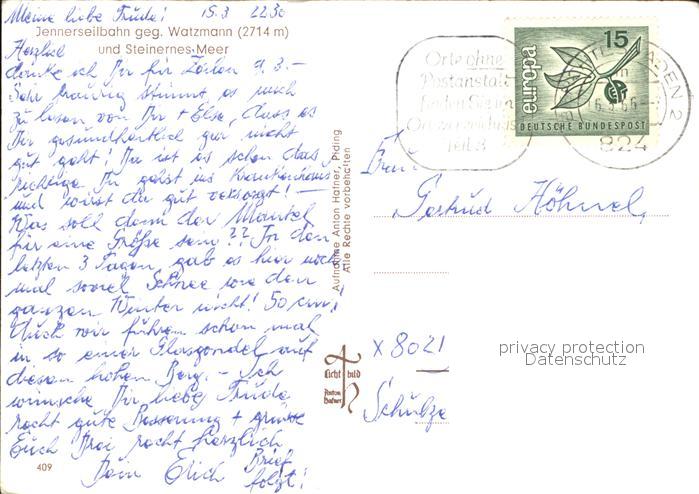 Meine liebe Trude! 15.3 22.30
Jennerseilbahn geg. Watzmann (2714 m)
und Steinernes Meer
Herzlich
danke ich Dir für Zeilen 9.3.–
Sehr traurig stimmt es mich
zu lesen von Dir + Else, dass es
Dir gesundheitlich gar nicht
gut geht! Da ist es schon das
richtige Du gehst ins Krankenhaus
und wirst da gut versorgt! –
Was soll denn der Mantel
für eine Größe sein?? In den
letzten 3 Tagen gab es hier noch
mal soviel Schnee wie den
ganzen Winter nicht! 50 cm!
Auch wir führen schon mal
in so einer Glasgondel auf
diesen hohen Berg. – Ich
wünsche Dir liebe Trude
recht gute Besserung + grüsse
Euch Drei recht herzlich
Dein Erich Brief
folgt!
409
Aufnahme Anton Hafner, Piding
Alle Rechte vorbehalten
Licht bild
Anton
Hafner
Orte ohne
Postanstalt
finden Sie im
Ortsverzeichnis
Teil 3
europa
15
DEUTSCHE BUNDESPOST
824
Frau
Gertrud Höhnel,
x 8021
Schulze
privacy protection
Datenschutz